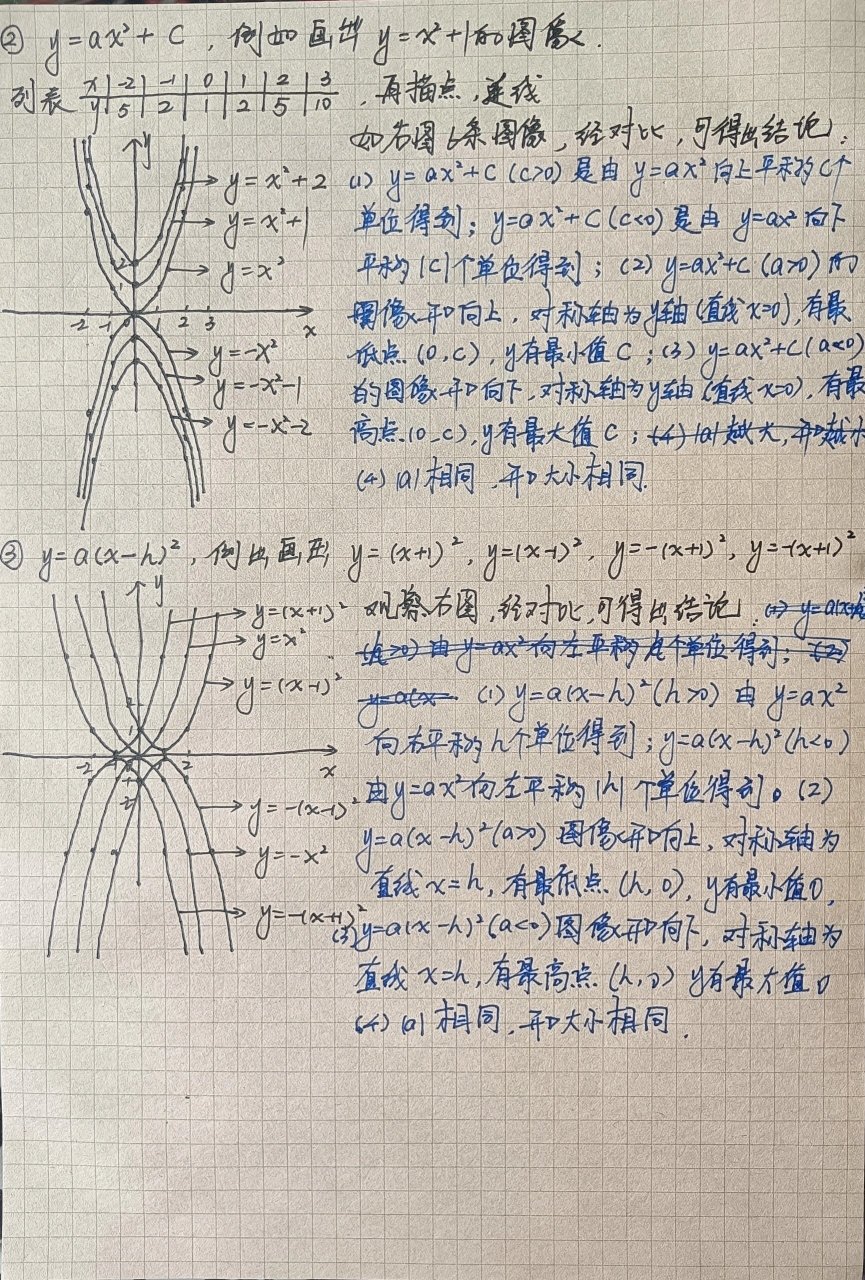 ② y=ax²+c，例如画出 y=x²+1的图像.
列表 x -2 -1 0 1 2 3 ，再描点，连线
y 5 2 1 2 5 10
如右图6条图像，经对比，可得出结论：
(1) y=ax²+c (c>0) 是由 y=ax² 向上平移c个
单位得到；y=ax²+c (c<0) 是由 y=ax² 向下
平移|c|个单位得到；(2) y=ax²+c (a>0) 的
图像开口向上，对称轴为y轴(直线x=0)，有最
低点(0,c)，y有最小值c；(3) y=ax²+c (a<0)
的图像开口向下，对称轴为y轴(直线x=0)，有最
高点(0,c)，y有最大值c；(4) |a|越大，开口越小
(4) |a|相同，开口大小相同.
y
y=x²+2
y=x²+1
y=x²
2
1
-2 -1 0 1 2 3 x
y=-x²
y=-x²-1
y=-x²-2
③ y=a(x-h)²，例出画出 y=(x+1)²，y=(x-1)²，y=-(x+1)²，y=-(x+1)²
观察右图，经对比，可得出结论：(1) y=a(x+h)
(h>0) 由 y=ax² 向左平移h个单位得到；(2)
y=a(x- (1) y=a(x-h)² (h>0) 由 y=ax²
向右平移h个单位得到；y=a(x-h)² (h<0)
由y=ax²向左平移|h|个单位得到。(2)
y=a(x-h)² (a>0) 图像开口向上，对称轴为
直线x=h，有最低点(h,0)，y有最小值0，
(3) y=a(x-h)² (a<0) 图像开口向下，对称轴为
直线x=h，有最高点(h,0) y有最大值0
(4) |a|相同，开口大小相同.
y
y=(x+1)²
y=x²
y=(x-1)²
2
1
-2 2 x
-1
-2
y=-(x-1)²
y=-x²
y=-(x+1)²